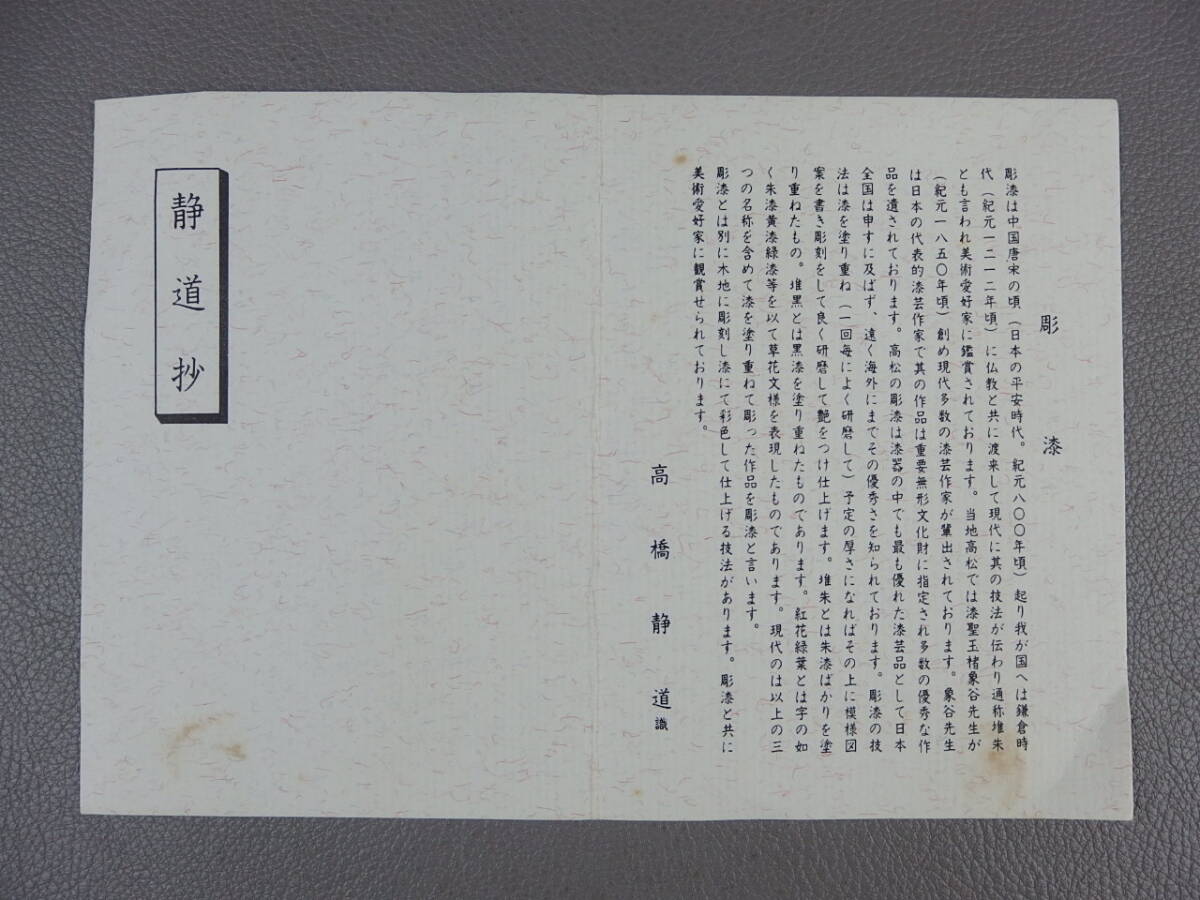 彫漆
彫漆は中国唐宋の頃（日本の平安時代。紀元八〇〇年頃）起り我が国へは鎌倉時
代（紀元一二一二年頃）に仏教と共に渡来して現代に其の技法が伝わり通称堆朱
とも言われ美術愛好家に鑑賞されております。当地高松では漆聖玉楮象谷先生が
（紀元一八五〇年頃）創め現代多数の漆芸作家が輩出されております。象谷先生
は日本の代表的漆芸作家で其の作品は重要無形文化財に指定され多数の優秀な作
品を遺されております。高松の彫漆は漆器の中でも最も優れた漆芸品として日本
全国は申すに及ばず、遠く海外にまでその優秀さを知られております。彫漆の技
法は漆を塗り重ね（一回毎によく研磨して）予定の厚さになればその上に模様図
案を書き彫刻をして良く研磨して艶をつけ仕上げます。堆朱とは朱漆ばかりを塗
り重ねたもの。堆黒とは黒漆を塗り重ねたものであります。紅花緑葉とは字の如
く朱漆黄漆緑漆等を以て草花文様を表現したものであります。現代のは以上の三
つの名称を含めて漆を塗り重ねて彫った作品を彫漆と言います。
彫漆とは別に木地に彫刻し漆にて彩色して仕上げる技法があります。彫漆と共に
美術愛好家に観賞せられております。
高橋静道識
静道抄